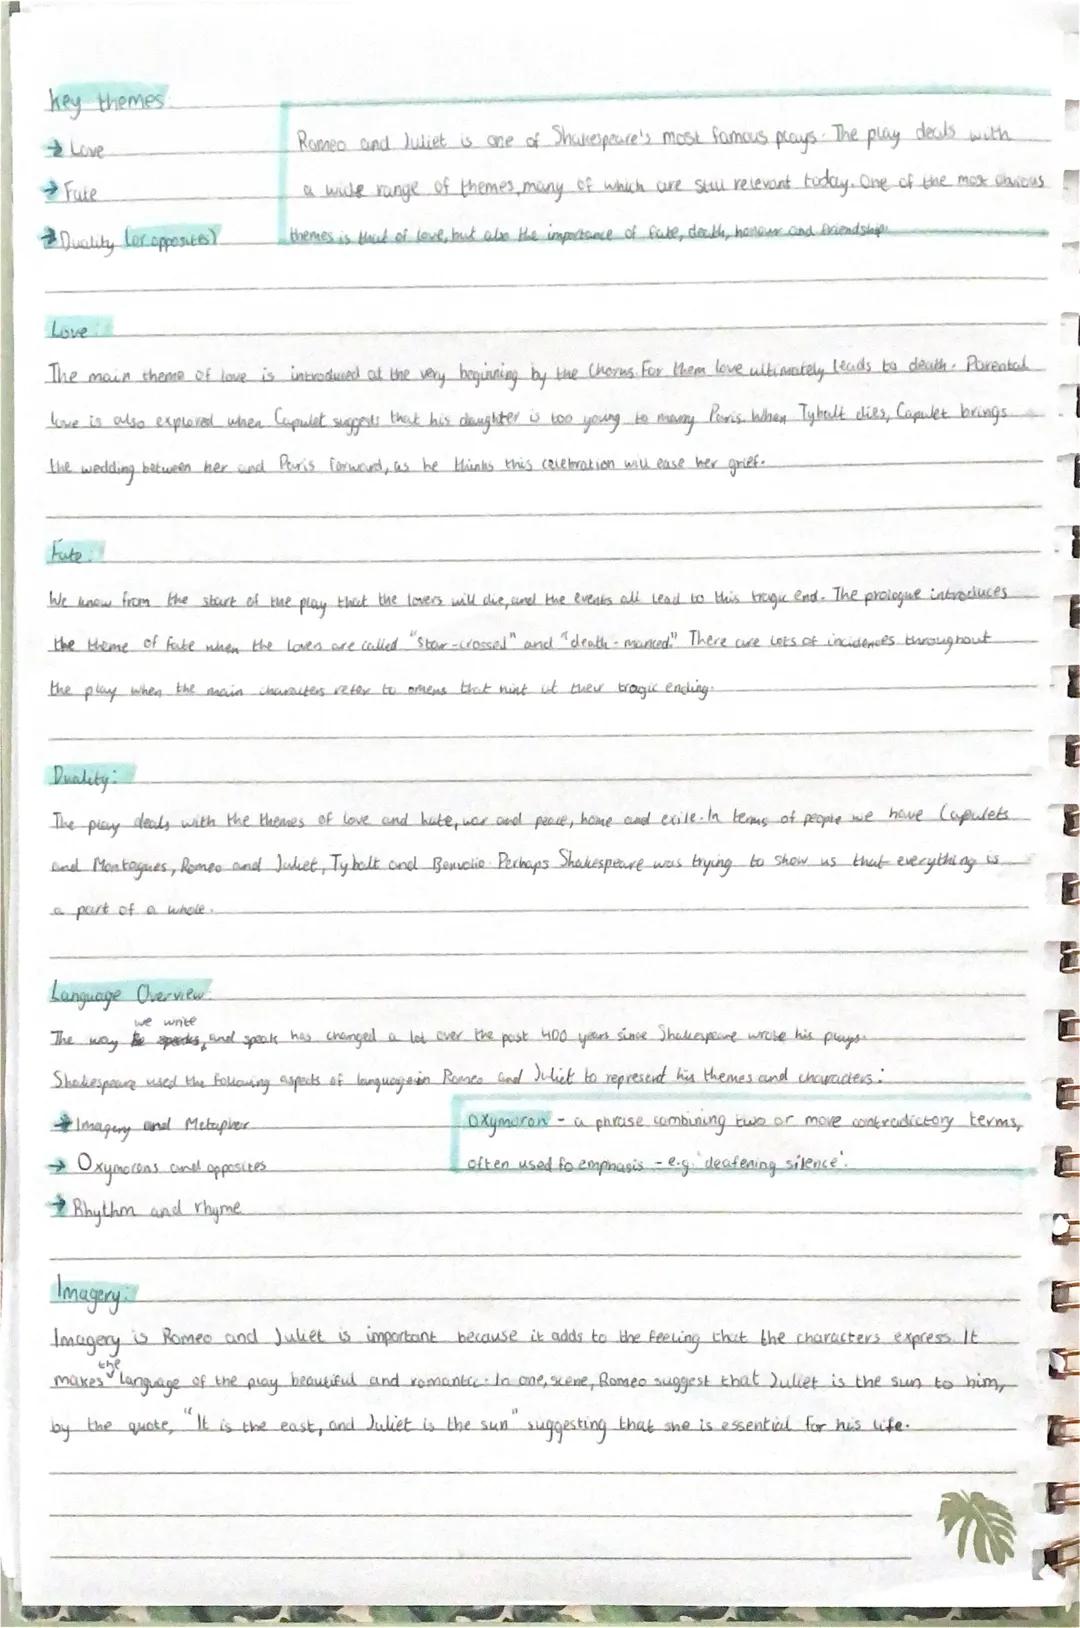 key themes:
→ Love
→ Fate
→ Duality (or opposites)
Romeo and Juliet is one of Shakespeare's most famous plays. The play deals with
a wide range of themes, many of which are still relevant today. One of the most obvious
themes is that of love, but also the importance of fate, death, honour and friendship.
Love:
The main theme of love is introduced at the very beginning by the Chorus. For them love ultimately leads to death. Parental
love is also explored when Capulet suggests that his daughter is too young to marry Paris. When Tybalt dies, Capulet brings
the wedding between her and Paris forward, as he thinks this celebration will ease her grief.
Fate:
We know from the start of the play that the lovers will die, and the events all lead to this tragic end. The prologue introduces
the theme of fate when the lovers are called "star-crossed" and "death-marked." There are lots of incidences throughout
the play when the main characters refer to omens that hint at their tragic ending.
Duality:
The play deals with the themes of love and hate, war and peace, home and exile. In terms of people we have Capulets
and Montagues, Romeo and Juliet, Tybalt and Benvolio. Perhaps Shakespeare was trying to show us that everything is
a part of a whole.
Language Overview:
The way we write, and speak has changed a lot over the past 400 years since Shakespeare wrote his plays.
Shakespeare used the following aspects of language in Romeo and Juliet to represent his themes and characters:
→ Imagery and Metaphor
→ Oxymorons and opposites
→ Rhythm and rhyme
Oxymoron - a phrase combining two or more contradictory terms,
often used fo emphasis - e.g. 'deafening silence'.
Imagery:
Imagery is Romeo and Juliet is important because it adds to the feeling that the characters express. It
makes the language of the play beautiful and romantic. In one, scene, Romeo suggest that Juliet is the sun to him,
by the quote, "It is the east, and Juliet is the sun" suggesting that she is essential for his life.